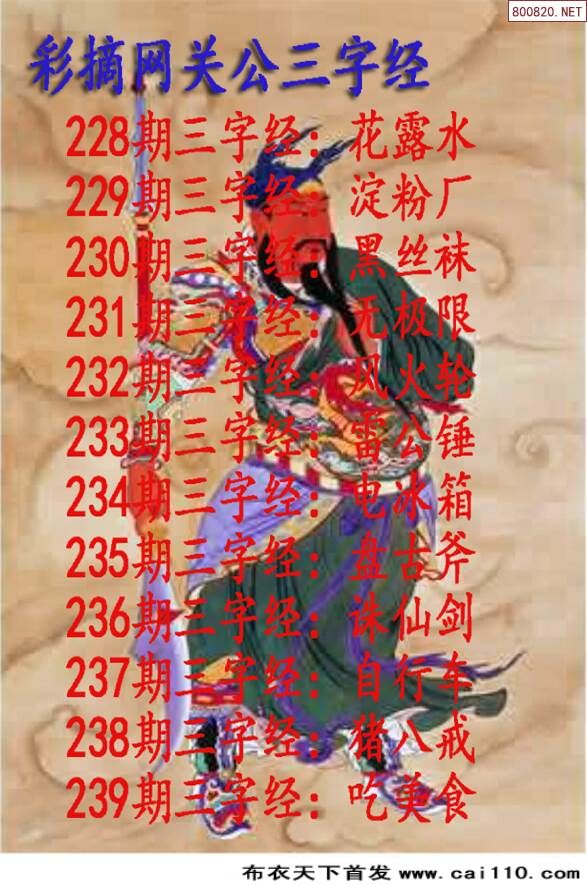 800820.NET
彩摘网关公三字经
228期三字经：花露水
229期三字经：淀粉厂
230期三字经：黑丝袜
231期三字经：无极限
232期三字经：风火轮
233期三字经：雷公锤
234期三字经：电冰箱
235期三字经：盘古斧
236期三字经：诛仙剑
237期三字经：自行车
238期三字经：猪八戒
239期三字经：吃美食
布衣天下首发 www.cai110.com